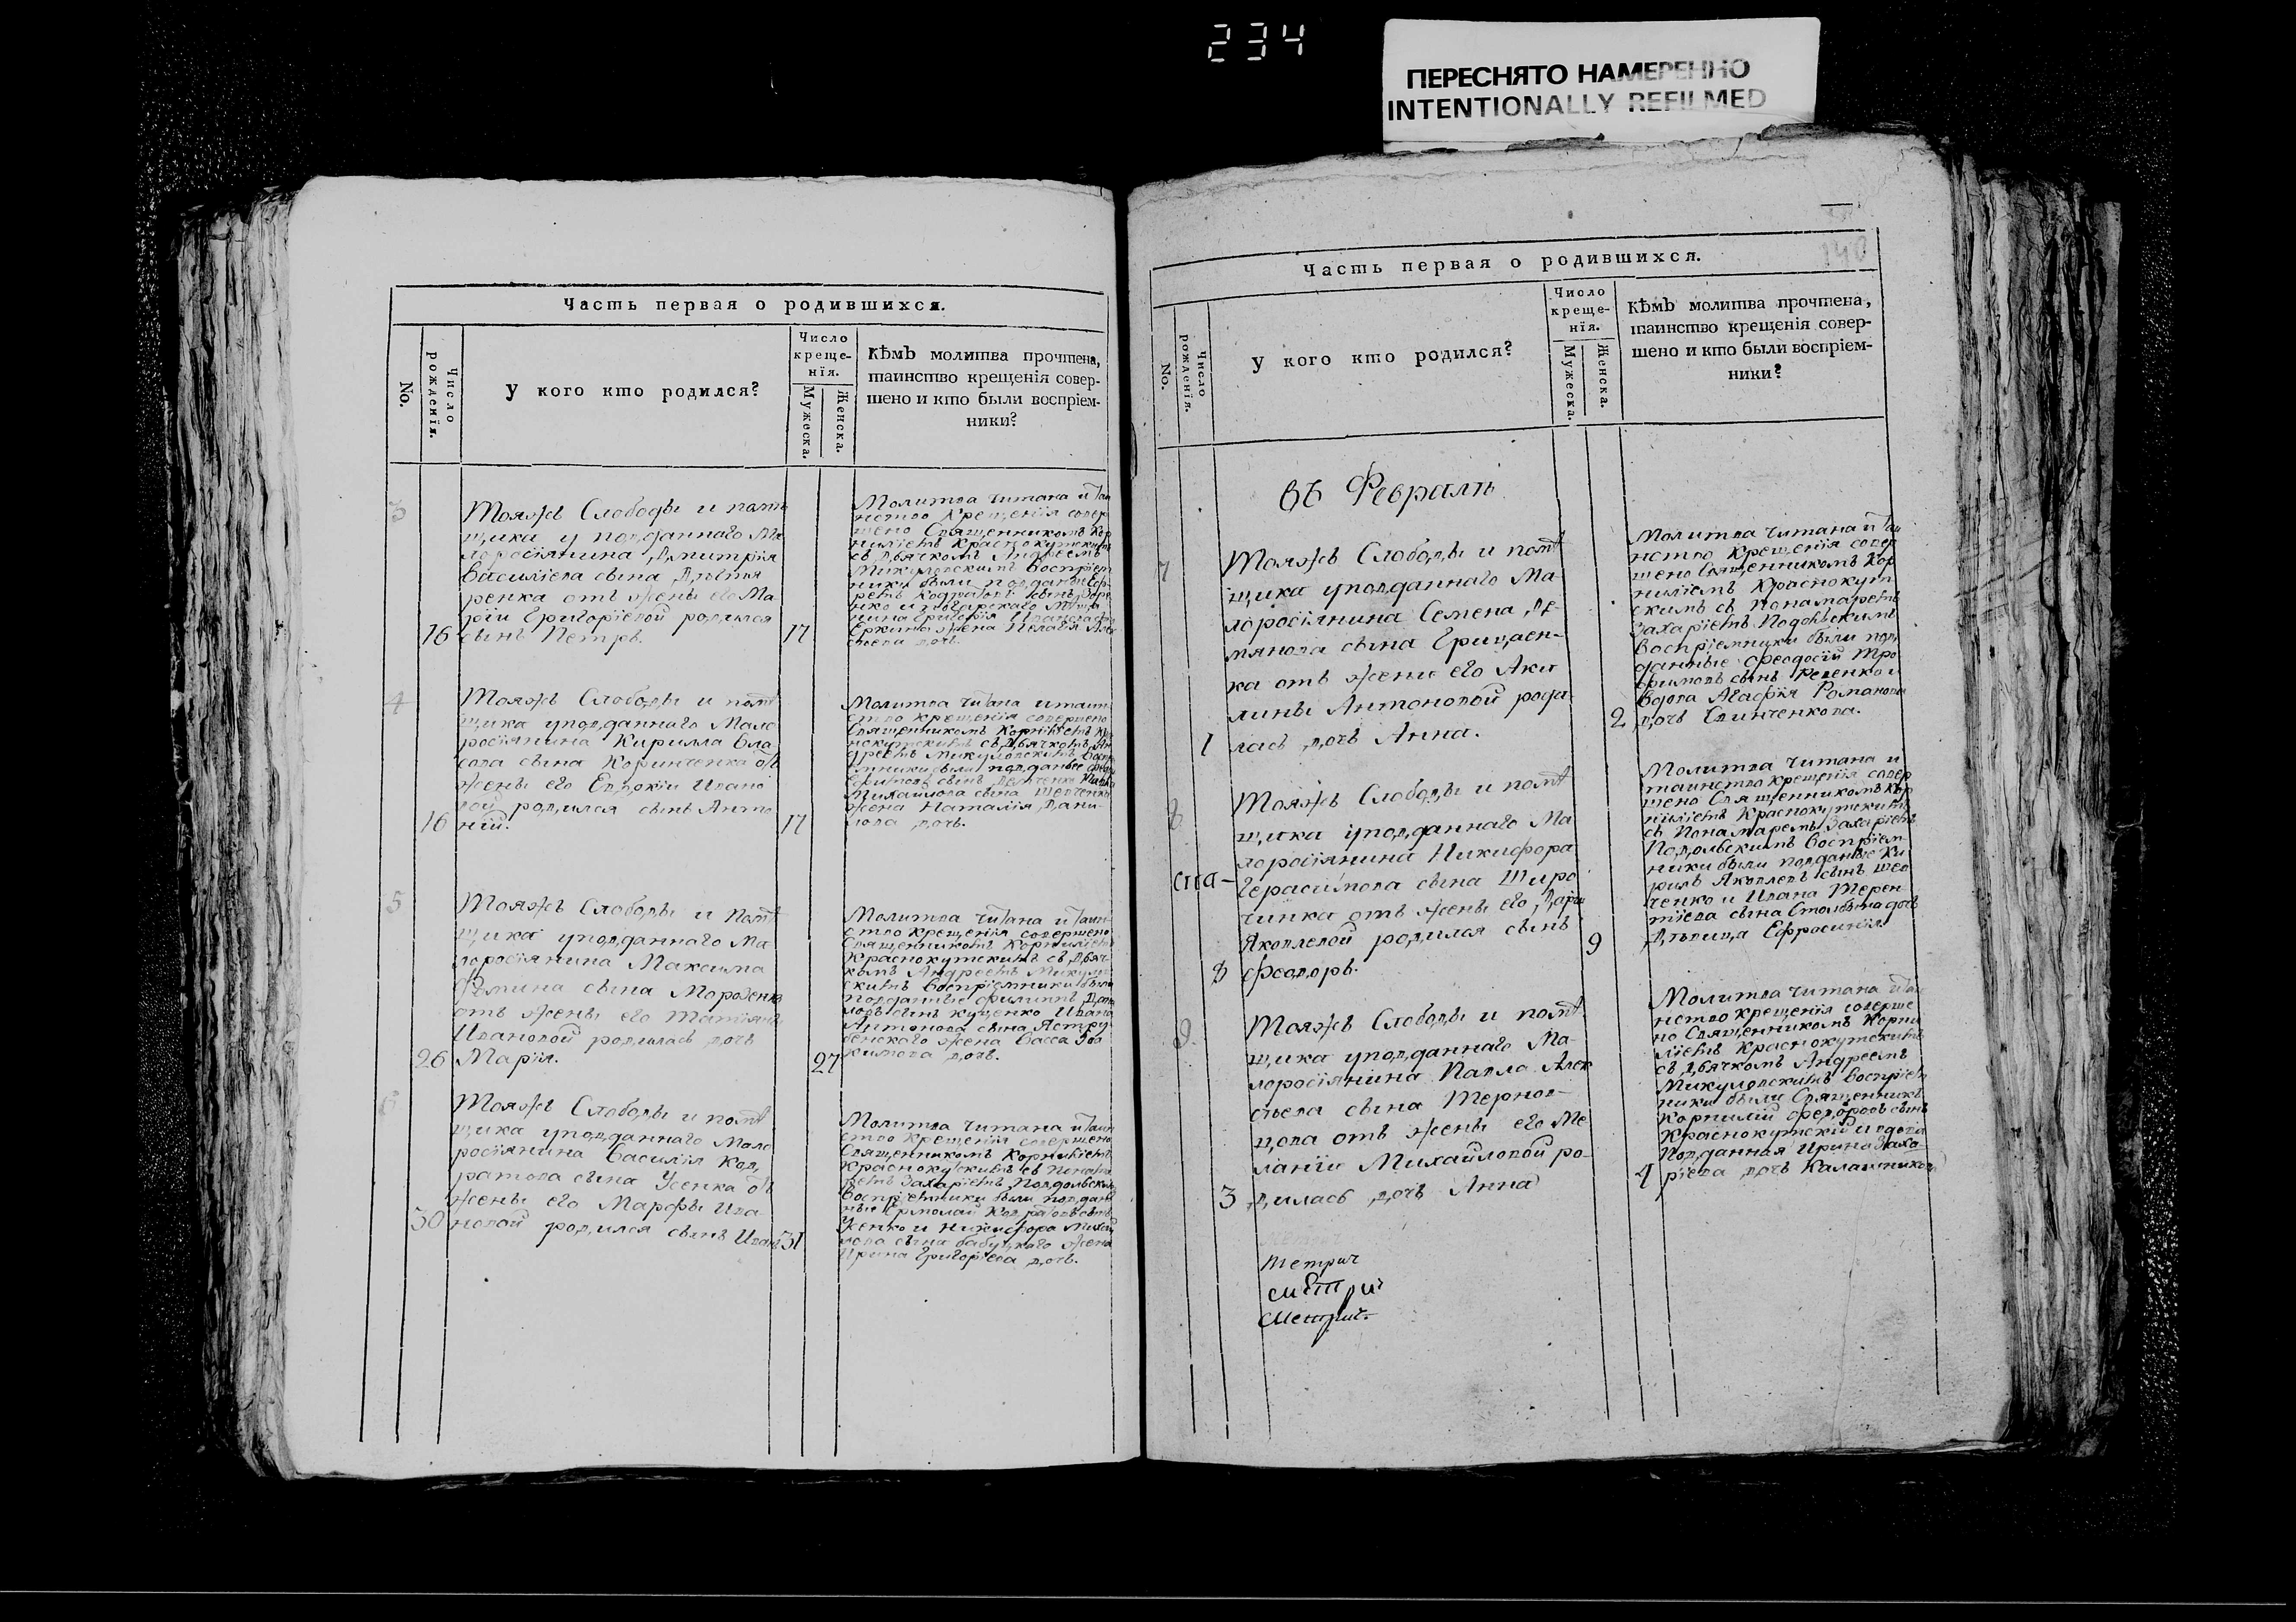 234
ПЕРЕСНЯТО НАМЕРЕННО
INTENTIONALLY REFILMED
Часть первая о родившихся.
No.
Число рожденїя.
У кого кто родился?
Число
креще-
нїя.
Мужеска.
Женска.
Кѣмъ молитва прочтена,
таинство крещенія совер-
шено и кто были воспріем-
ники?
3
Тояжъ Слободы и помѣ
щика у подданнаго Ма
лоросіянина Дмитрія
Василіева сына
ренка отъ жены его Ма
ріи Григоріевой родился
16 сынъ Петръ. 17
Молитва читана и Таи
нство Крещенія совер
шено Священникомъ Кор
ниліемъ Краснокутскимъ
съ Дьячкомъ Андреемъ
Микуловскимъ Воспріем
ники были
дочь.
4
Тояжъ Слободы и помѣ
щика уподданнаго Мало
росіянина Кирилла Вла
сова сына Коринченка отъ
жены его Евдокіи Ивано
вой родился сынъ Анто
16 ній. 17
Молитва читана итаин
ство крещенія совершено
Священникомъ Корниліемъ Кра
снокутскимъ съ Дьячкомъ Ан
дреемъ Микуловскимъ Воспрі
емники были подданые
Михайлова сына Шевченка
жена Наталія Дани-
лова дочь.
5
Тояжъ Слободы и Помѣ
щика уподданнаго Ма
лоросіянина Максима
Фомина сына
отъ жены его Татіяны
Ивановой родилась дочь
26 Марія. 27
Молитва читана и Таин-
ство крещенія совершено
Священникомъ Корниліемъ
Краснокутскимъ съ Дьяч-
комъ Андреемъ Микулов
скимъ Воспріемники были
подданные Филиппъ
сынъ Куценко Ивана
Антонова сына
жена Васса
дочь.
6
Тояжъ Слободы и помѣ
щика уподданнаго Мало
росіянина Василія Код
ратова сына Усенка отъ
жены его Марфы Ива
30 новой родился сынъ Иванъ 31
Молитва Читана и Таин
ство Крещенія совершено
Священникомъ Корниліемъ
Краснокутскимъ съ Понама
ремъ Захаріемъ Подольскимъ
Воспріемники были поддан
ные Ермолай Кодратовъ сынъ
Усенко и Никифора Михай
лова сына жена
Ирина Григоріева дочь.
Часть первая о родившихся.
140
No.
Число рожденїя.
У кого кто родился?
Число
креще-
нїя.
Мужеска.
Женска.
Кѣмъ молитва прочтена,
таинство крещенія совер-
шено и кто были воспріем-
ники?
Въ Февралѣ
7
Тояжъ Слободы и помѣ
щика уподданнаго Ма-
лоросіянина Семена Де-
мянова сына Грицаен-
ка отъ жены его Аки
лины Антоновой роди
1 лась дочь Анна. 2
Молитва Читана и Таи
нство Крещенія совер
шено Священникомъ Кор
ниліемъ Краснокут
скимъ съ Понамаремъ
Захаріемъ Подольскимъ
Воспріемники были под
данные Феодосій Тро
фимовъ сынъ и
вдова Агафія Романова
дочь Свинченкова.
8
Тояжъ Слободы и помѣ
щика уподданнаго Ма
лоросіянина Никифора
Герасимова сына Широ
чинка отъ жены его Дарьи
Яковлевой родился сынъ
8 Феодоръ. 9
Молитва Читана и
таинство крещенія совер
шено Священникомъ Кор
ниліемъ Краснокутскимъ
съ Понамаремъ Захаріемъ
Подольскимъ Воспріем-
ники были подданые Ки
рилъ Яковлевъ сынъ Шев
ченко и Ивана Терен
тіева сына дочь
Дѣвица Ефросинія
9.
Тояжъ Слободы и помѣ
щика уподданнаго Ма-
лоросіянина Павла Алек
сѣева сына Тернов-
цова отъ жены его Ме
ланіи Михайловой ро-
3 дилась дочь Анна 4
Молитва читана и Таи
нство крещенія соверше
но Священникомъ Корни
ліемъ Краснокутскимъ
съ Дьячкомъ Андреемъ
Микуловскимъ Воспріем
ники были Священникъ
Корнилій Федоровъ сынъ
Краснокутскій и вдова
Подданная Ирина Заха-
ріева дочь Калашникова